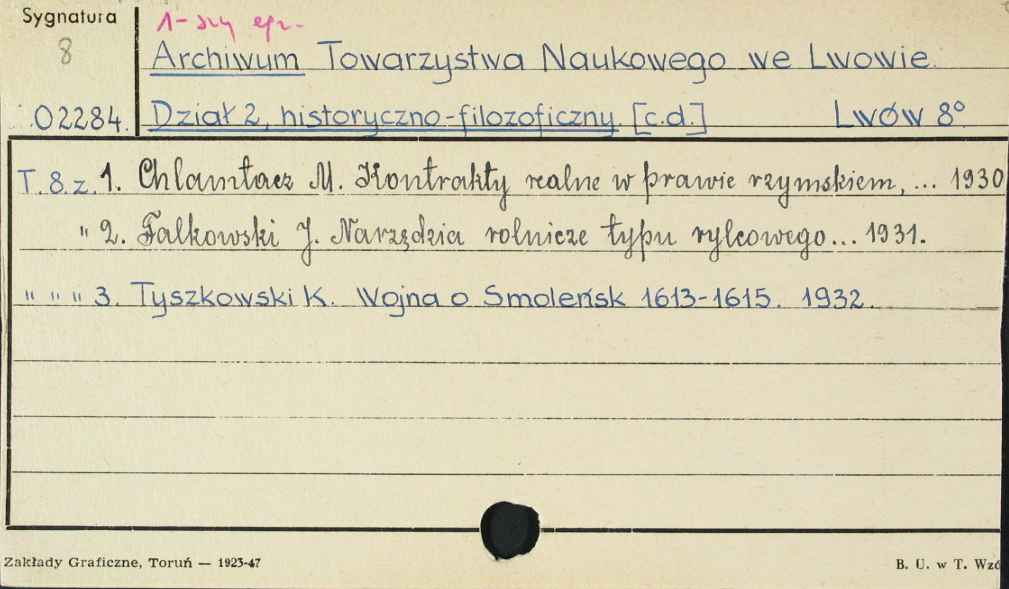 Sygnatura
1-szy egz.
8
Archiwum Towarzystwa Naukowego we Lwowie
02284. Dział 2, historyczno-filozoficzny. [c.d.] Lwów 8°
T. 8. z. 1. Chlamtacz M. Kontrakty realne w prawie rzymskiem, ... 1930
" 2. Falkowski J. Narzędzia rolnicze typu rylcowego... 1931.
" " " 3. Tyszkowski K. Wojna o Smoleńsk 1613-1615. 1932.
Zakłady Graficzne, Toruń — 1923-47
B. U. w T. Wzó